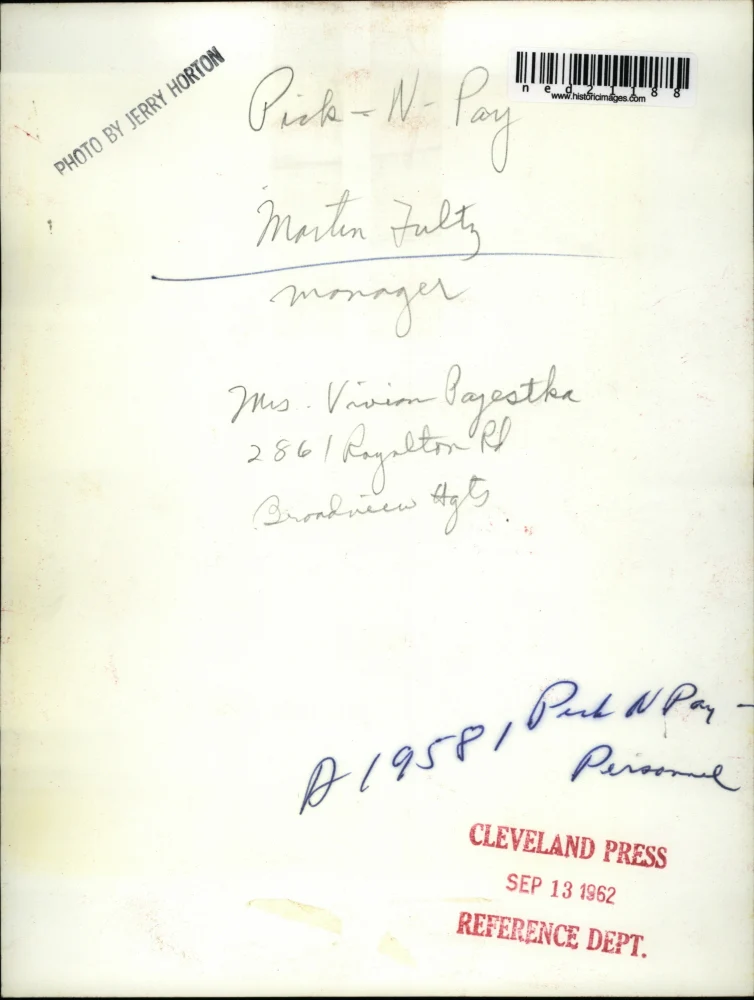 PHOTO BY JERRY HORTON
ned21188
www.historicimages.com
Pick-N-Pay
Martin Fultz
manager
Mrs. Vivian Pajestka
2861 Royalton Rd
Broadview Hgts
A 19581, Pick N Pay -
Personnel
CLEVELAND PRESS
SEP 13 1962
REFERENCE DEPT.